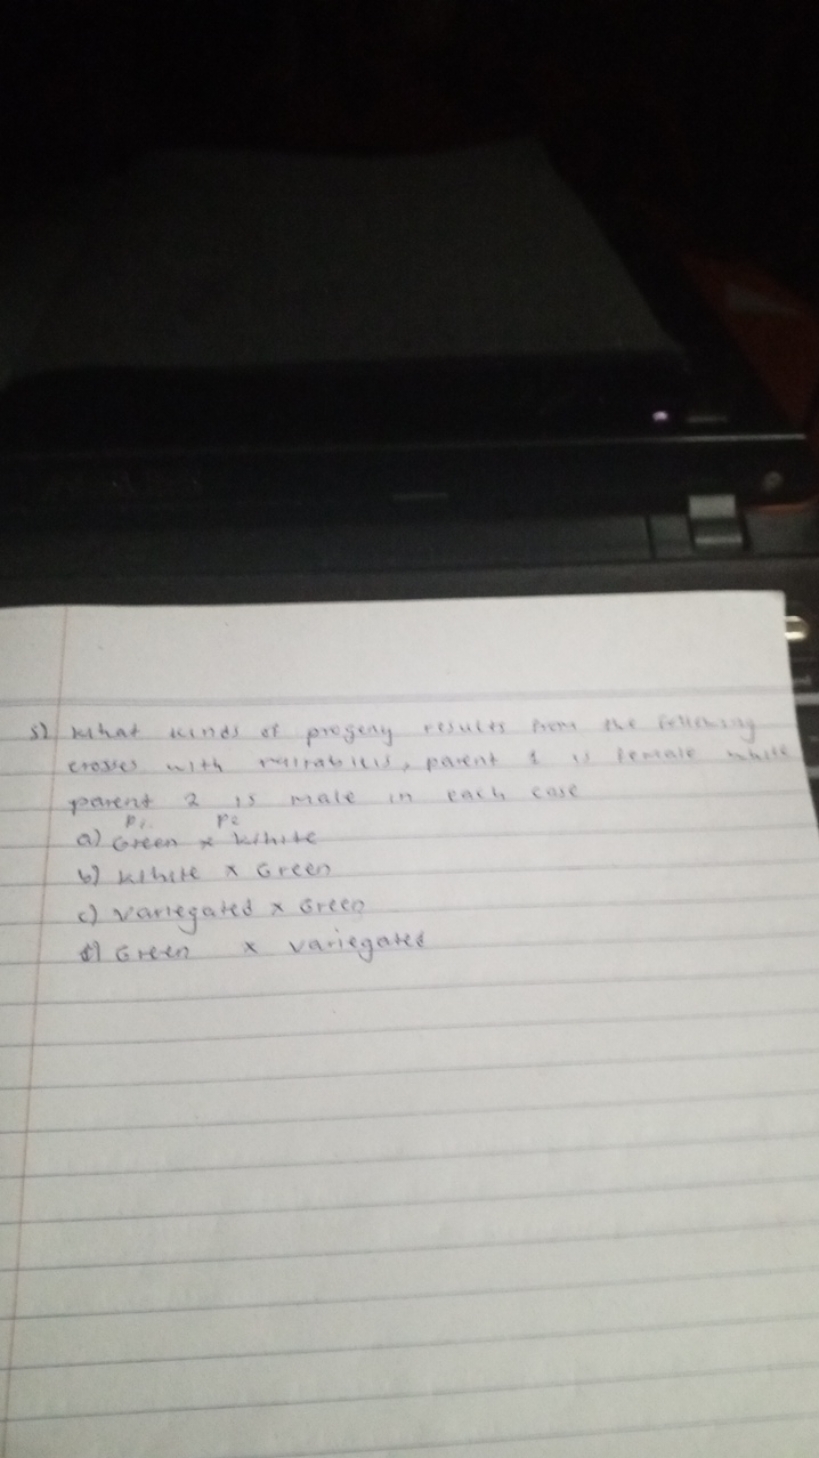 5) What kinds of progeny results from the following
crosses with mirabilis, parent 1 is female while
parent 2 is male in each case
P1 P2
a) Green x White
b) White x Green
c) Variegated x Green
d) Green x variegated